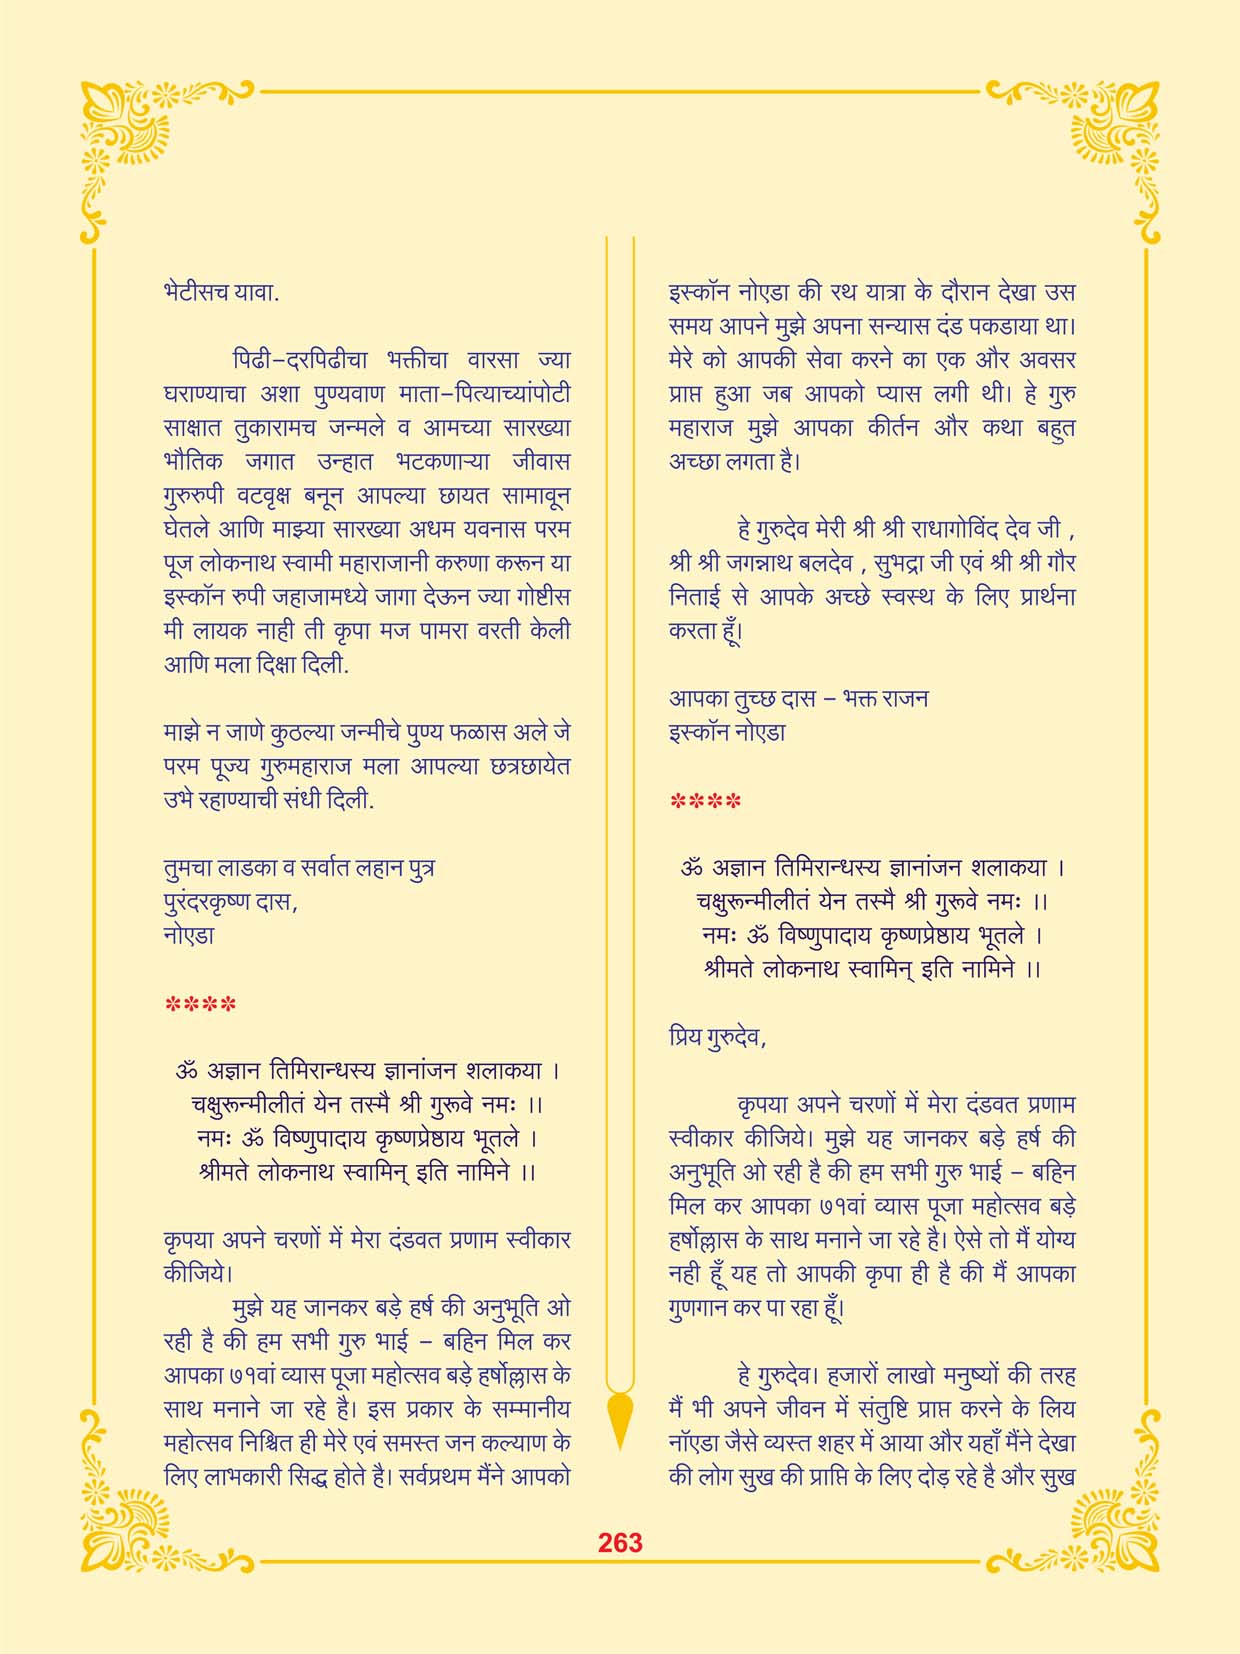 भेटीसच यावा.
पिढी-दरपिढीचा भक्तीचा वारसा ज्या
घराण्याचा अशा पुण्यवाण माता-पित्याच्यांपोटी
साक्षात तुकारामच जन्मले व आमच्या सारख्या
भौतिक जगात उन्हात भटकणाऱ्या जीवास
गुरुरुपी वटवृक्ष बनून आपल्या छायत सामावून
घेतले आणि माझ्या सारख्या अधम यवनास परम
पूज लोकनाथ स्वामी महाराजानी करुणा करून या
इस्कॉन रुपी जहाजामध्ये जागा देऊन ज्या गोष्टीस
मी लायक नाही ती कृपा मज पामरा वरती केली
आणि मला दिक्षा दिली.
माझे न जाणे कुठल्या जन्मीचे पुण्य फळास अले जे
परम पूज्य गुरुमहाराज मला आपल्या छत्रछायेत
उभे रहाण्याची संधी दिली.
तुमचा लाडका व सर्वात लहान पुत्र
पुरंदरकृष्ण दास,
नोएडा
****
ॐ अज्ञान तिमिरान्धस्य ज्ञानांजन शलाकया ।
चक्षुरून्मीलीतं येन तस्मै श्री गुरूवे नमः ।।
नमः ॐ विष्णुपादाय कृष्णप्रेष्ठाय भूतले ।
श्रीमते लोकनाथ स्वामिन् इति नामिने ।।
कृपया अपने चरणों में मेरा दंडवत प्रणाम स्वीकार
कीजिये।
मुझे यह जानकर बड़े हर्ष की अनुभूति ओ
रही है की हम सभी गुरु भाई - बहिन मिल कर
आपका ७१वां व्यास पूजा महोत्सव बड़े हर्षोल्लास के
साथ मनाने जा रहे है। इस प्रकार के सम्मानीय
महोत्सव निश्चित ही मेरे एवं समस्त जन कल्याण के
लिए लाभकारी सिद्ध होते है। सर्वप्रथम मैंने आपको
इस्कॉन नोएडा की रथ यात्रा के दौरान देखा उस
समय आपने मुझे अपना सन्यास दंड पकडाया था।
मेरे को आपकी सेवा करने का एक और अवसर
प्राप्त हुआ जब आपको प्यास लगी थी। हे गुरु
महाराज मुझे आपका कीर्तन और कथा बहुत
अच्छा लगता है।
हे गुरुदेव मेरी श्री श्री राधागोविंद देव जी ,
श्री श्री जगन्नाथ बलदेव , सुभद्रा जी एवं श्री श्री गौर
निताई से आपके अच्छे स्वस्थ के लिए प्रार्थना
करता हूँ।
आपका तुच्छ दास - भक्त राजन
इस्कॉन नोएडा
****
ॐ अज्ञान तिमिरान्धस्य ज्ञानांजन शलाकया ।
चक्षुरून्मीलीतं येन तस्मै श्री गुरूवे नमः ।।
नमः ॐ विष्णुपादाय कृष्णप्रेष्ठाय भूतले ।
श्रीमते लोकनाथ स्वामिन् इति नामिने ।।
प्रिय गुरुदेव,
कृपया अपने चरणों में मेरा दंडवत प्रणाम
स्वीकार कीजिये। मुझे यह जानकर बड़े हर्ष की
अनुभूति ओ रही है की हम सभी गुरु भाई - बहिन
मिल कर आपका ७१वां व्यास पूजा महोत्सव बड़े
हर्षोल्लास के साथ मनाने जा रहे है। ऐसे तो मैं योग्य
नही हूँ यह तो आपकी कृपा ही है की मैं आपका
गुणगान कर पा रहा हूँ।
हे गुरुदेव। हजारों लाखो मनुष्यों की तरह
मैं भी अपने जीवन में संतुष्टि प्राप्त करने के लिय
नॉएडा जैसे व्यस्त शहर में आया और यहाँ मैंने देखा
की लोग सुख की प्राप्ति के लिए दोड़ रहे है और सुख
263